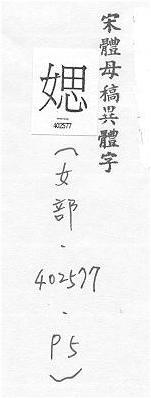 宋體母稿異體字
媤
402577
(女部-402577-P5)